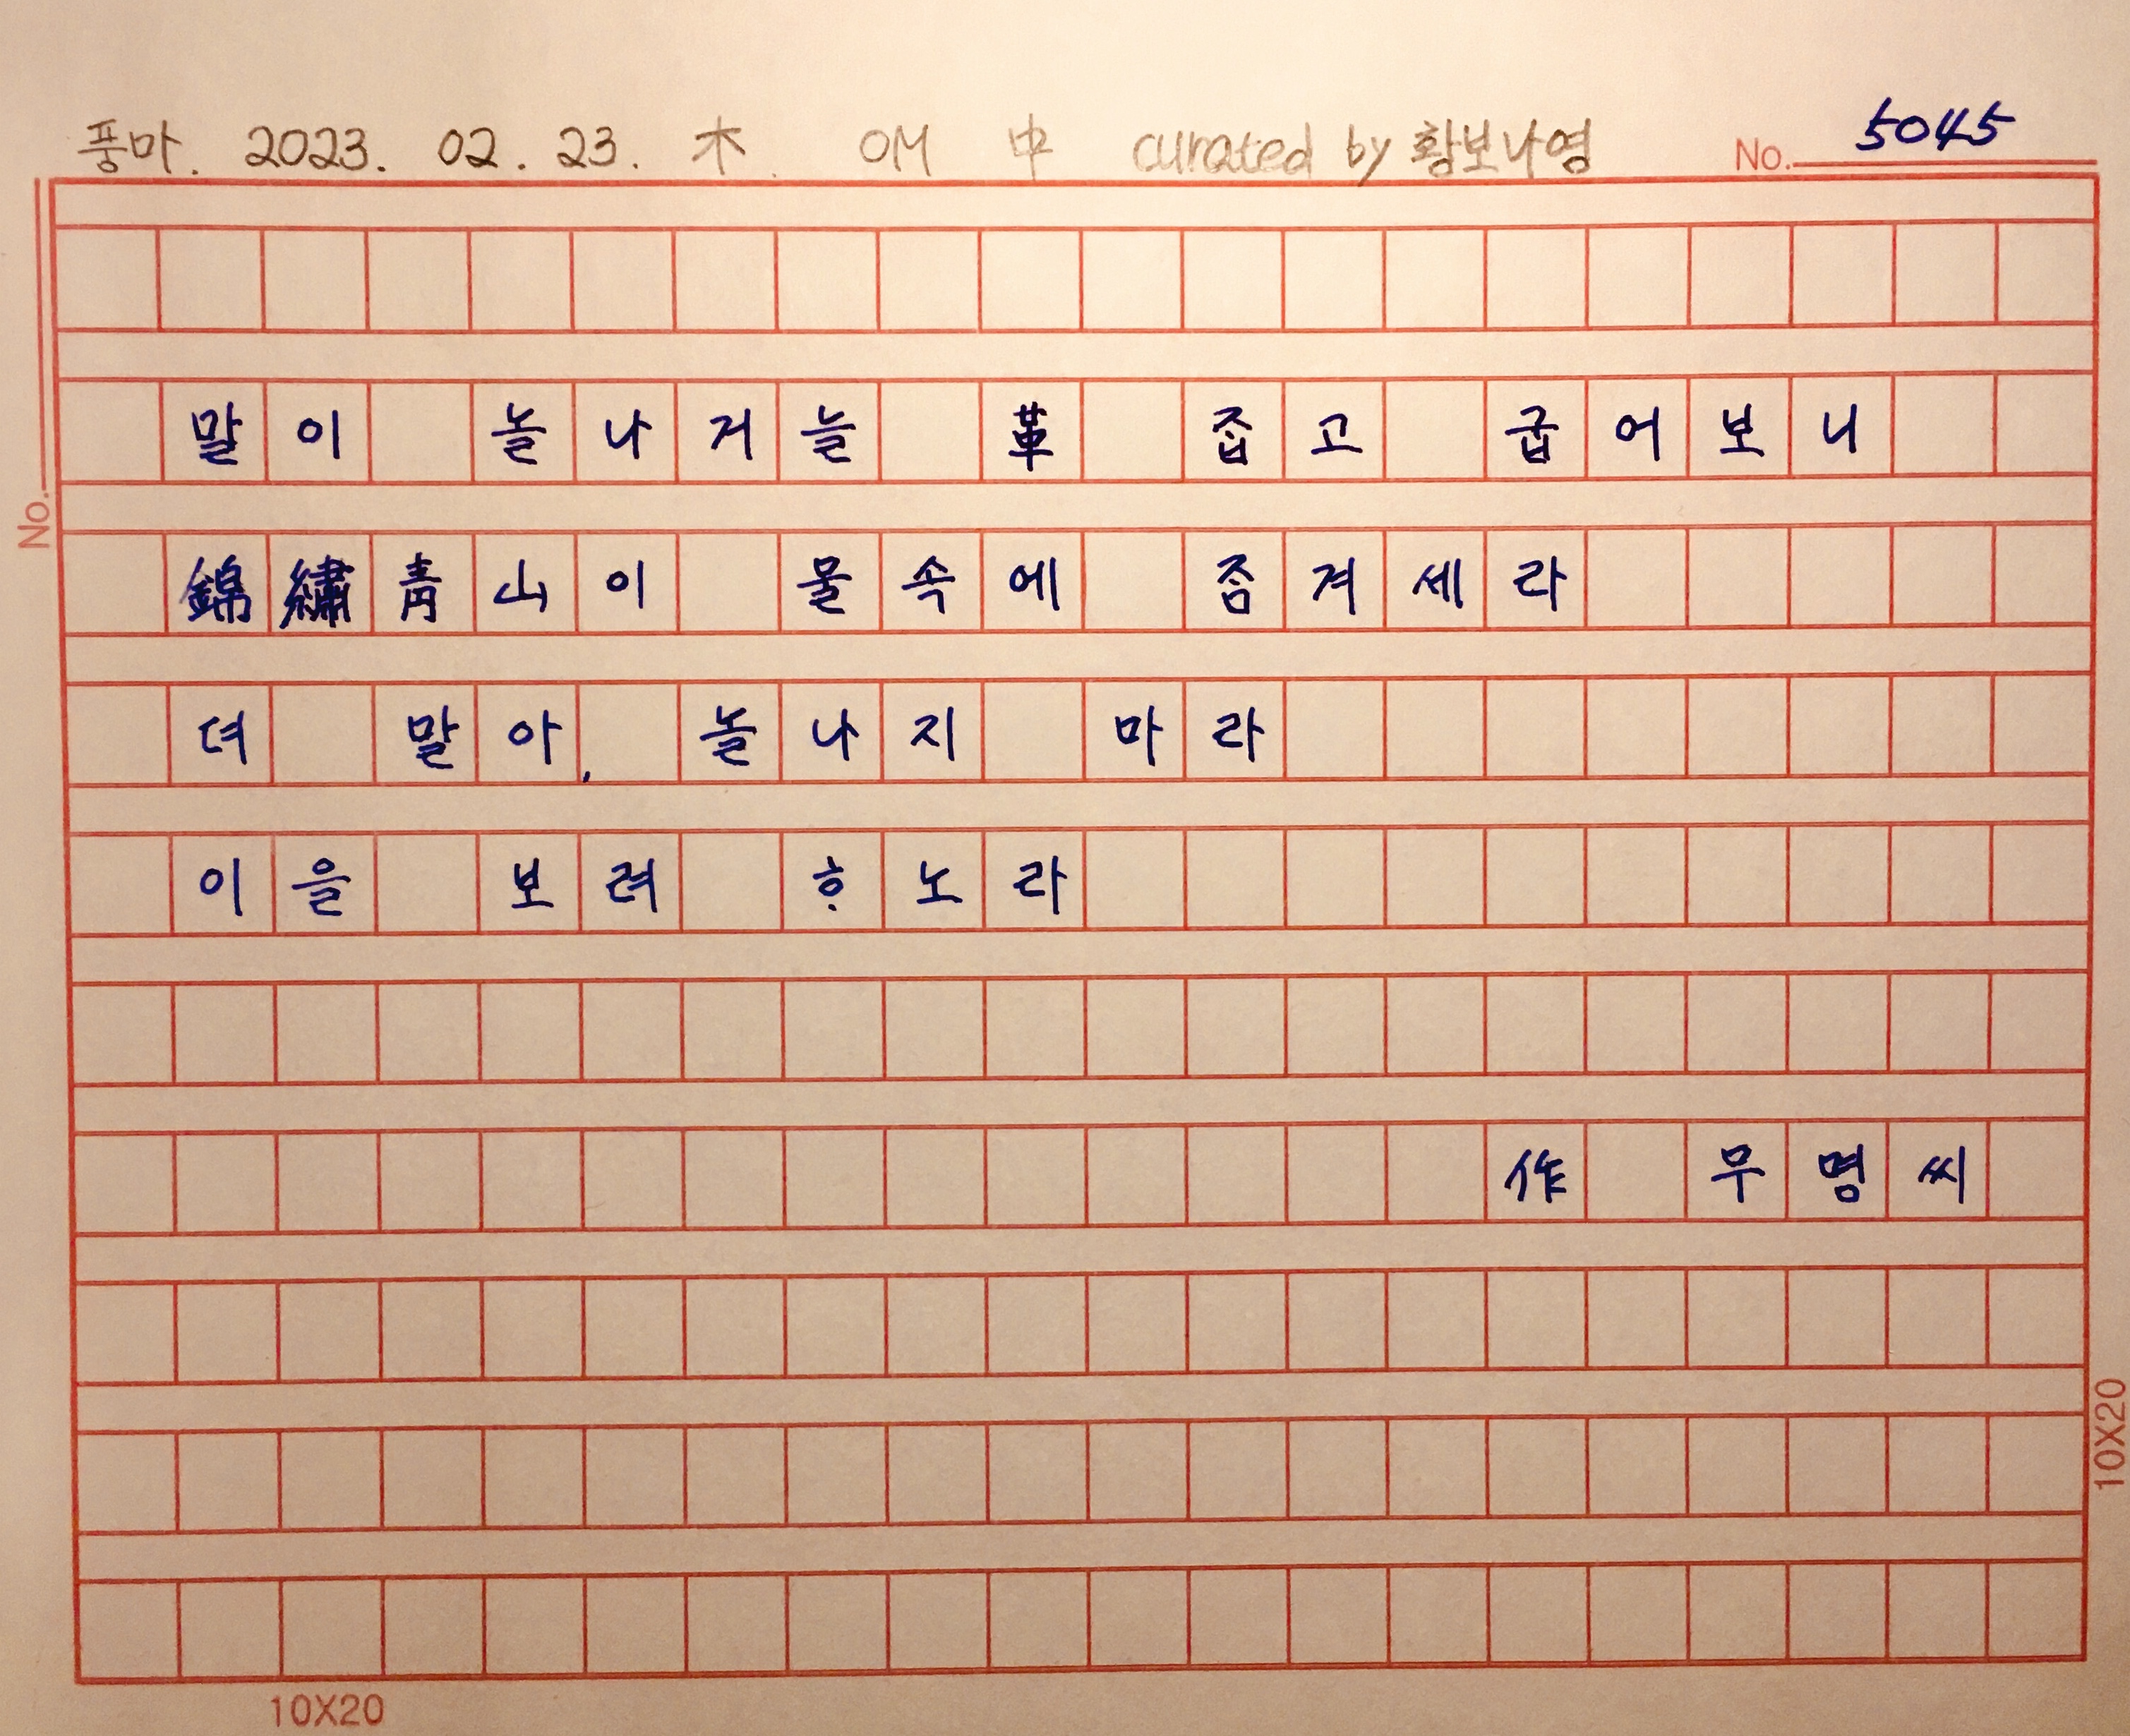 풍마. 2023. 02. 23. 木. OM 中 curated by 황보나영 No. 5045
No.
말이 놀나거늘 革 ᄌᆞᆸ고 굽어보니
錦繡靑山이 물속에 ᄌᆞᆷ겨세라
뎌 말아, 놀나지 마라
이을 보려 ᄒᆞ노라
作 무명씨
10X20
10X20